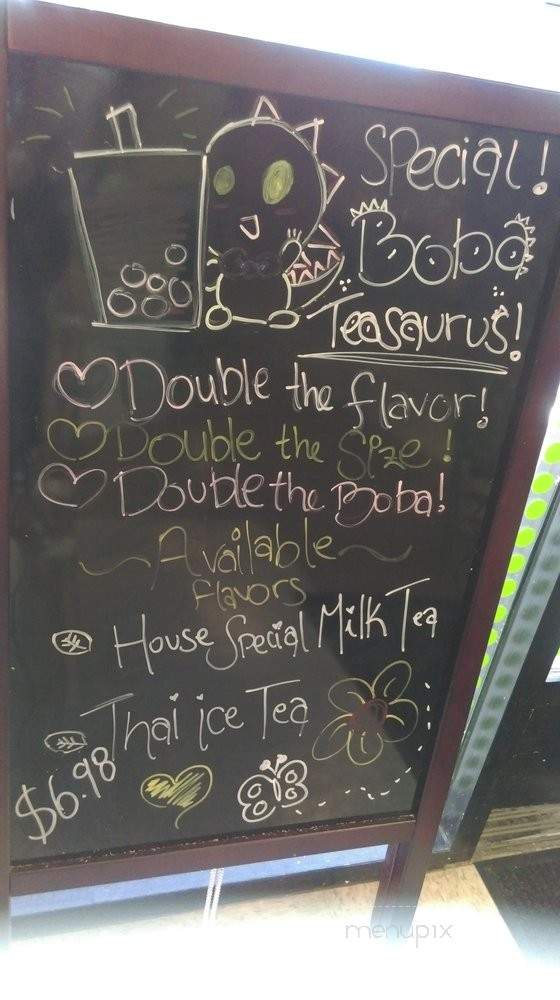 Special!
Boba
Teasaurus!
Double the flavor!
Double the Size!
Double the Boba!
Available
flavors
House Special Milk Tea
Thai ice Tea
$6.98
menupix